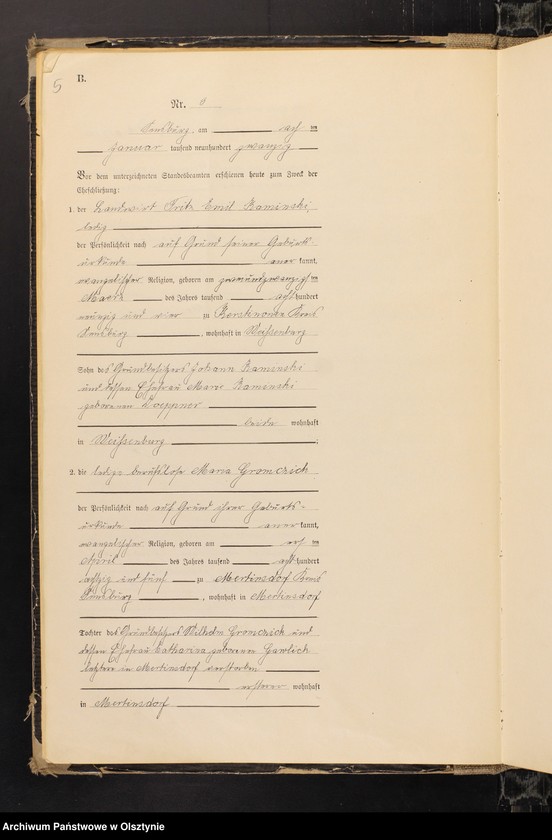 5
B.
Nr.
Sensburg, am acht ten
Januar tausend neunhundert zwanzig
Vor dem unterzeichneten Standesbeamten erschienen heute zum Zweck der
Eheschließung:
1. der Landwirt Fritz Emil Kaminski,
ledig
der Persönlichkeit nach auf Grund seiner Geburts-
urkunde aner kannt,
evangelischer Religion, geboren am zweiundzwanzigsten
März des Jahres tausend acht hundert
neunzig und vier zu Kreis
Sensburg, wohnhaft in Weissenburg
Sohn des Grundbesitzers Johann Kaminski
und dessen Ehefrau Marie Kaminski
geborenen
beide wohnhaft
in Weissenburg;
2. die ledige berufslose Maria Gromczich
der Persönlichkeit nach auf Grund ihrer Geburts-
urkunde aner kannt,
evangelischer Religion, geboren am ten
April des Jahres tausend acht hundert
achtzig und fünf zu Mertinsdorf Kreis
Sensburg, wohnhaft in Mertinsdorf
Tochter des Grundbesitzers Wilhelm Gromczich und
dessen Ehefrau Catharina geborenen Gawlich
letztere in Mertinsdorf verstorben
ersterer wohnhaft
in Mertinsdorf
Archiwum Państwowe w Olsztynie